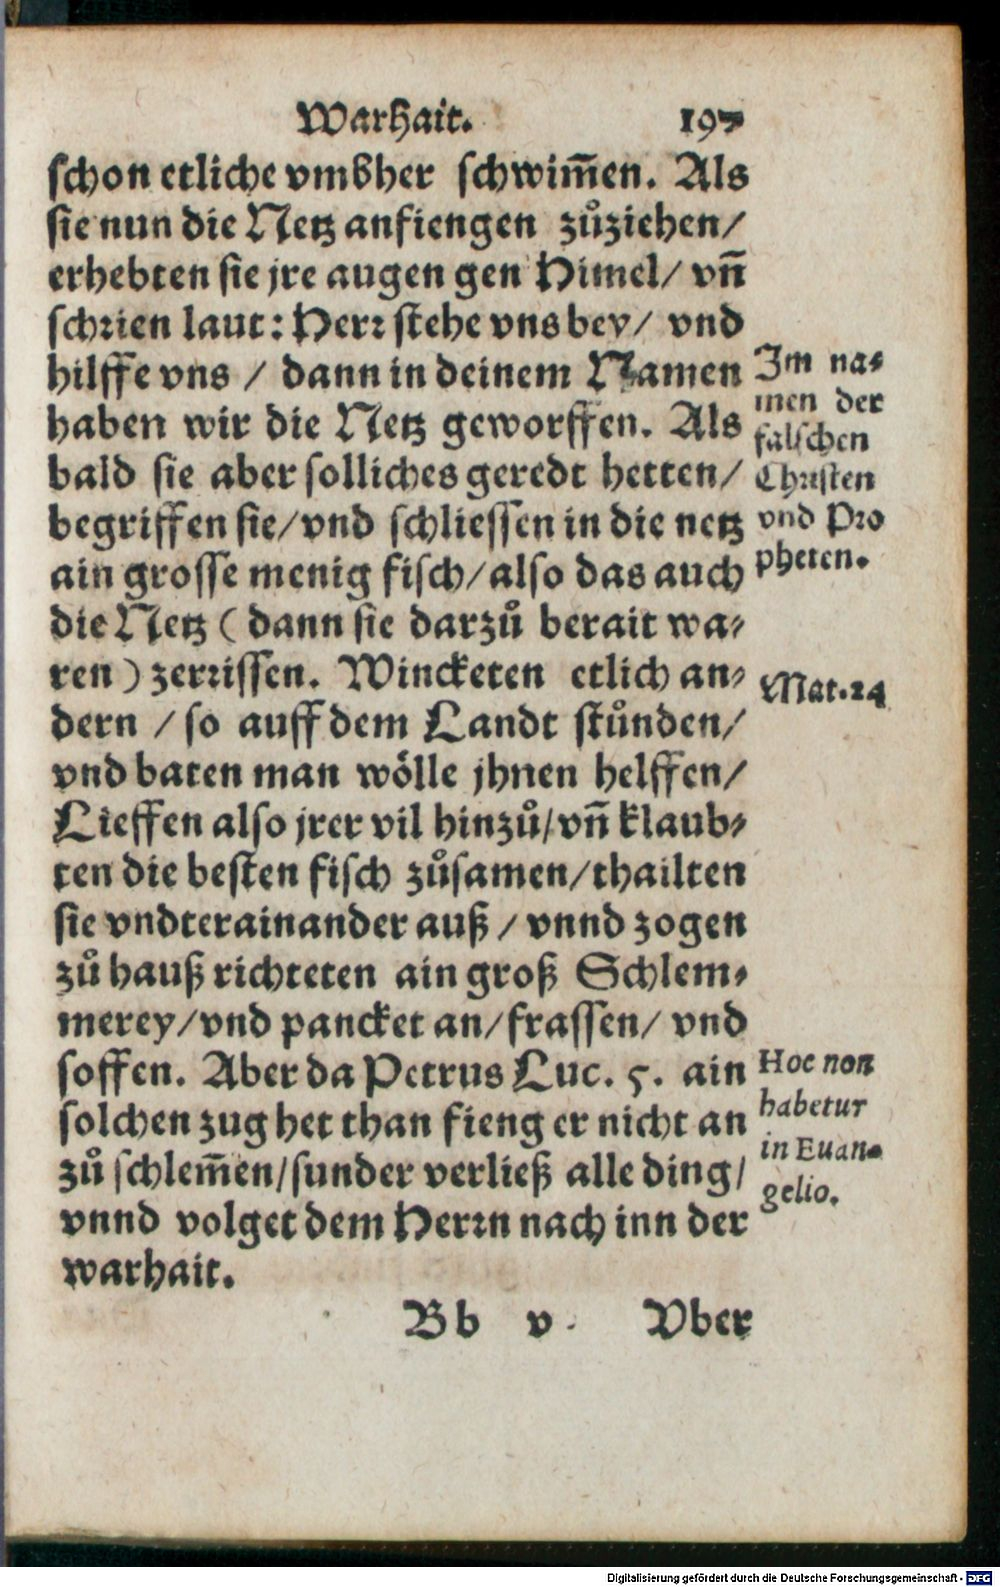 Warhait. 197
schon etliche vmbher schwim̃en. Als
sie nun die Netz anfiengen zůziehen/
erhebten sie jre augen gen Himel/ vñ
schrien laut: Herr stehe vns bey/ vnd
hilffe vns / dann in deinem Namen
haben wir die Netz geworffen. Als
bald sie aber solliches geredt hetten/
begriffen sie/vnd schliessen in die netz
ain grosse menig fisch/also das auch
die Netz ( dann sie darzů berait wa-
ren ) zerrissen. Wincketen etlich an-
dern / so auff dem Landt stůnden/
vnd baten man wölle jhnen helffen/
Lieffen also jrer vil hinzů/vñ klaub-
ten die besten fisch zůsamen/thailten
sie vndterainander auß / vnnd zogen
zů hauß richteten ain groß Schlem-
merey/vnd pancket an/frassen/ vnd
soffen. Aber da Petrus Luc. 5. ain
solchen zug het than fieng er nicht an
zů schlem̃en/sunder verließ alle ding/
vnnd volget dem Herrn nach inn der
warhait.
Im na-
men der
falschen
Christen
vnd Pro
pheten.
Mat.24
Hoc non
habetur
in Euan-
gelio.
Bb v. Vber
Digitalisierung gefördert durch die Deutsche Forschungsgemeinschaft - DFG